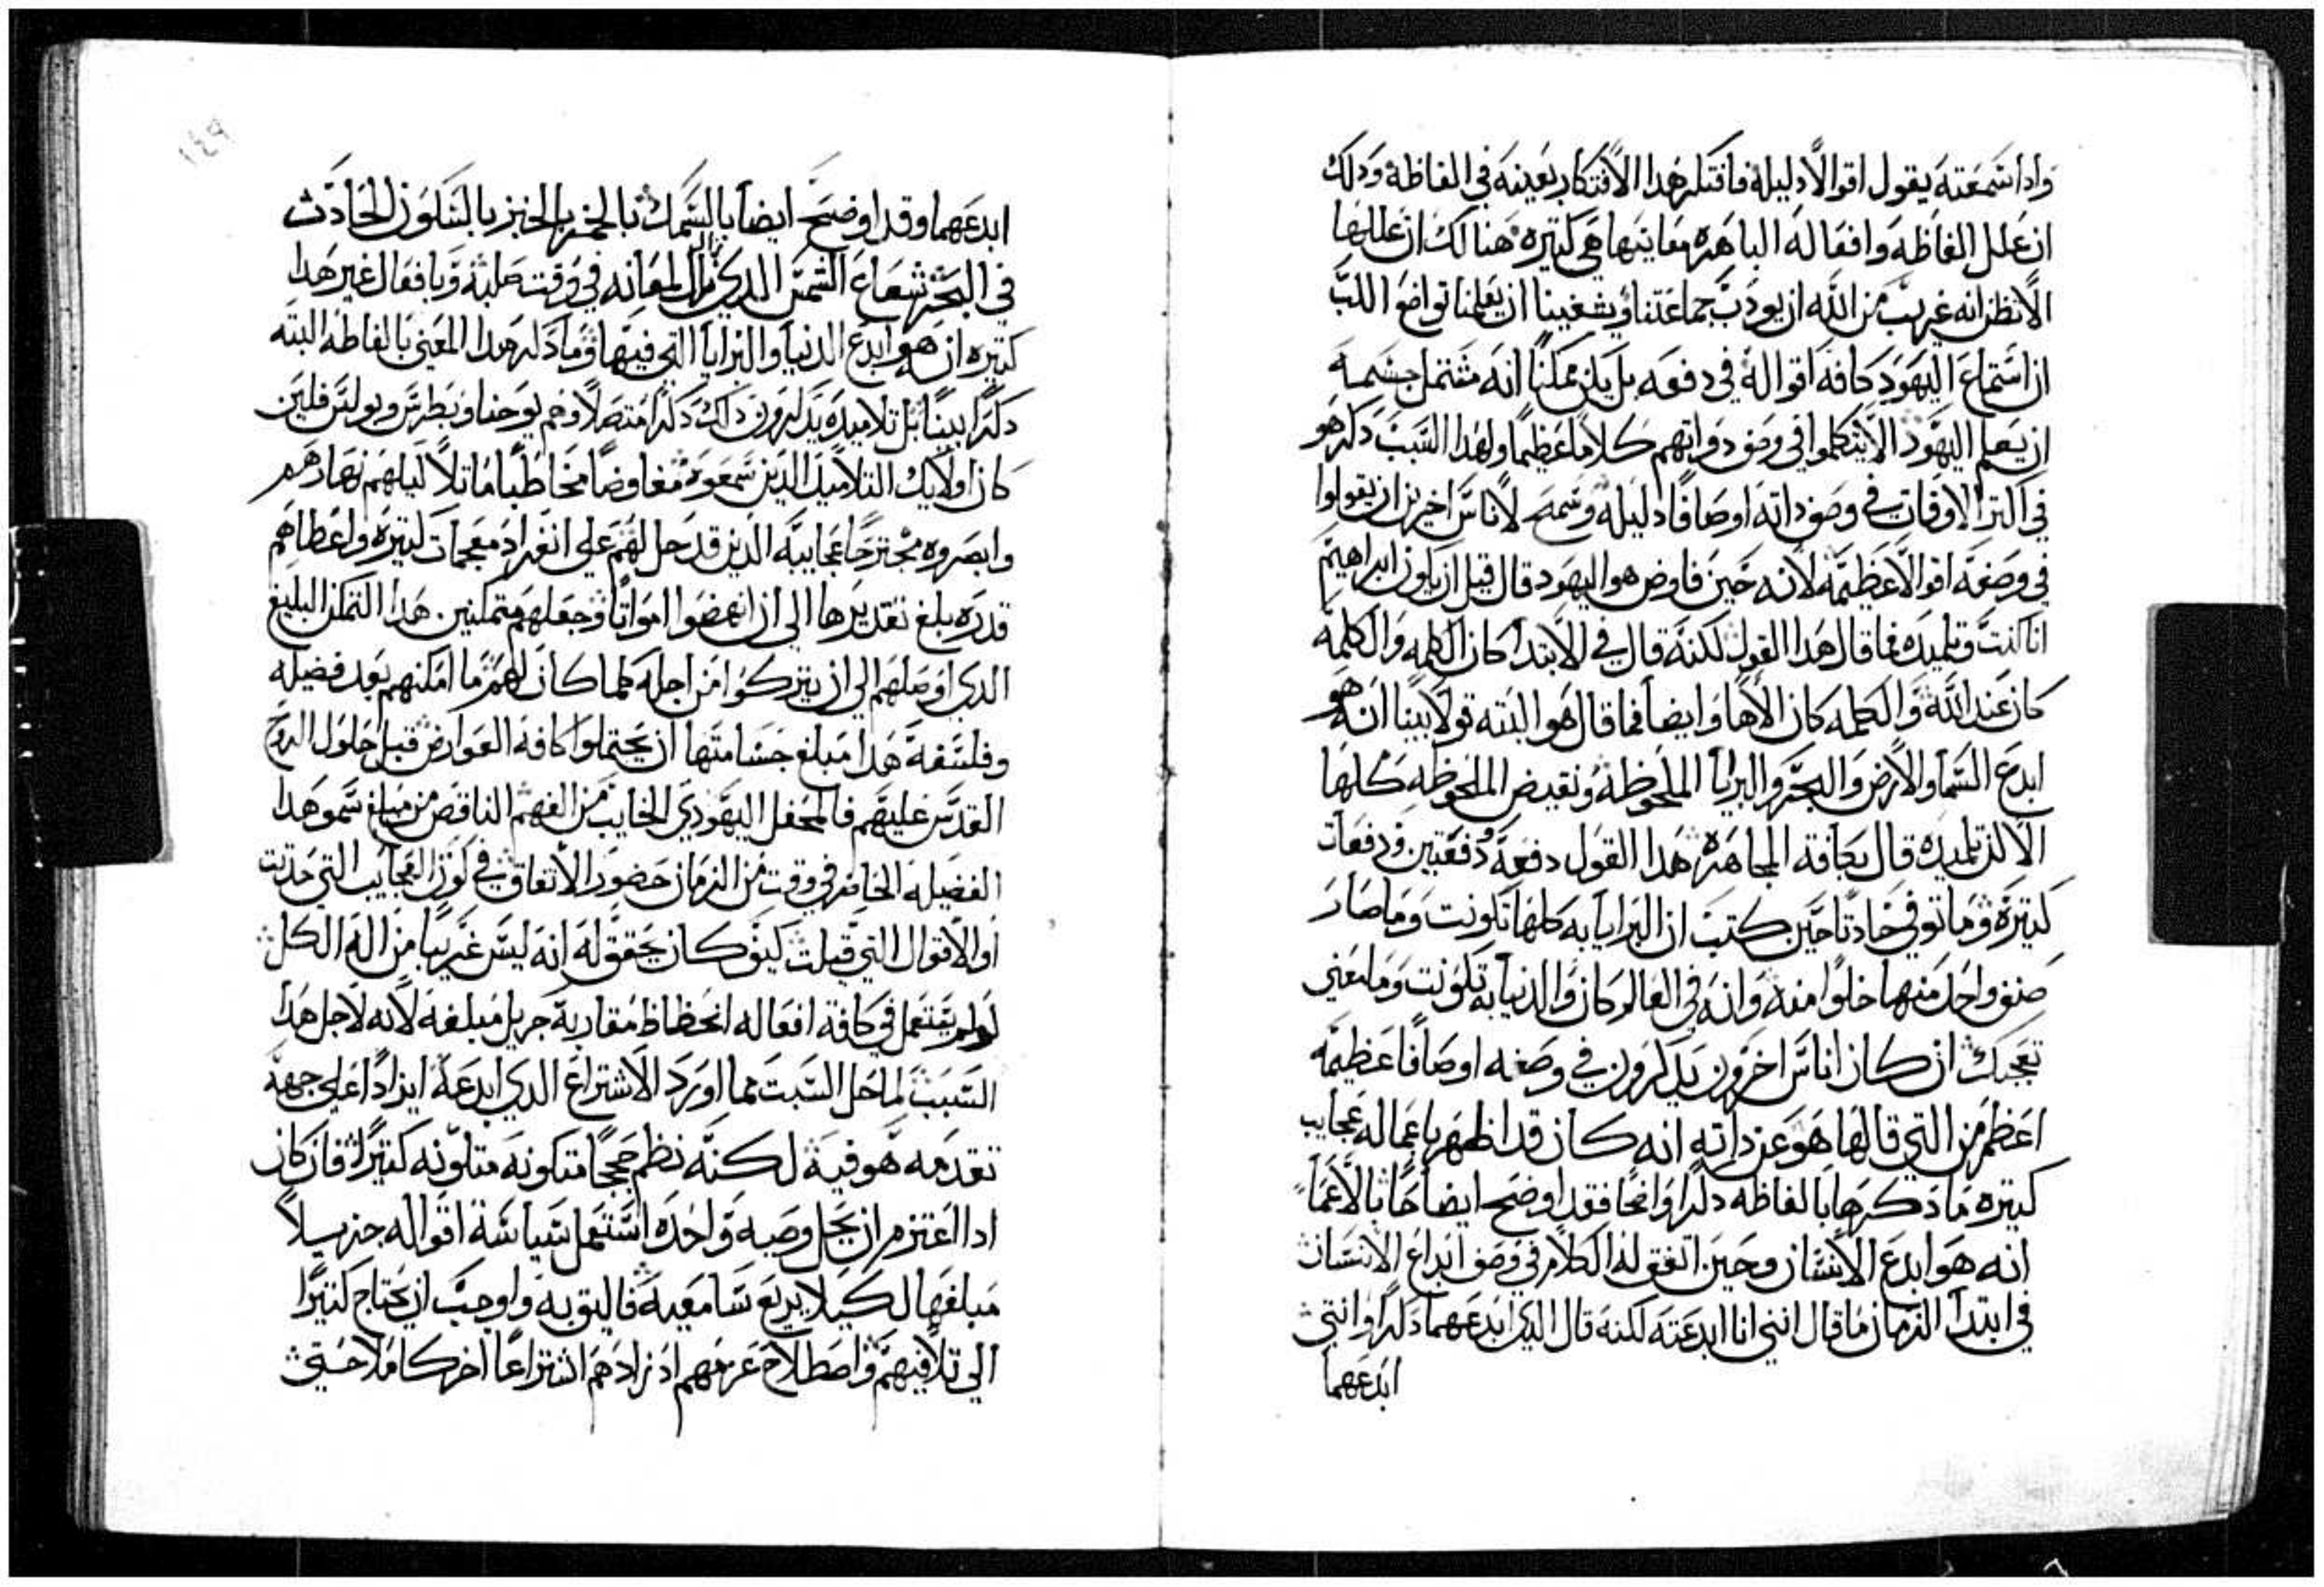 واداسمعته يقول اقوالا دليلة فافتكر هدا الافتكار بعينه في الفاظه ودلك
ان علل الفاظه وافعاله الباهره معانيها هي كتيره هنالك ان عللها
الا نظن انه غريب من الله ان يودب جماعتنا ويشفينا ان يعلمنا تواضع اللب
ان استماع اليهود كافه اقواله في دفعه بل يكن ممكنا انه مشتمل جسمه
ان يعلم اليهود الا يتكلموا في وصف دواتهم كلاما عظيما ولهدا السبب دكر هو
في اكتر الاوقات في وصف داته اوصافا دليله وسمح لاناس اخرين ان يقولوا
في وصفه اقوالا عظيمه لانه حين فاوض هو اليهود قال قبل ان يكون ابراهيم
انا كنت وتلميده فما قال هدا القول لكنه قال في الابتدا كان الكلمه والكلمه
كان عند الله والكلمه كان الاها وايضا فما قال هو البته قولا بينا انه هو
ابدع السما والارض والبحر والبرايا الملحوظه ونقيض الملحوظه كلها
الا ان تلميده قال بكافة المجاهره هدا القول دفعة ودفعتين ودفعات
كتيرة وما توقف حادتا حين كتب ان البرايا به كلها تكونت وما صار
صنف واحد منها خلوا منه وانه في العالم كان والدنيا به تكونت وما معني
تعجبك ان كان اناس اخرون يدكرون في وصفه اوصافا عظيمه
اعظم من التي قالها هو عن داته انه كان قد اظهر باعماله عجايب
كتيره ما دكرها بالفاظه دكرا واضحا فقد اوضح ايضا حا بالاعما
انه هو ابدع الانسان وحين اتفق له الكلام في وصف ابداع الانسان
في ابتدا الزمان ما قال انني انا ابدعته لكنه قال الدي ابدعهما دكرا وانتي
ابدعهما
١٤٩
ابدعهما وقد اوضح ايضا بالسمك بالخمر بالخبز بالتكون الحادث
في البحر بشعاع الشمس الدي ازال لمعانه في وقت صلبه وبافعال غير هدا
كتيره انه هو ابدع الدنيا والبرايا التي فيها وما دكر هدا المعني بالفاظه البته
دكرا بينا بل تلاميده يدكرون داك دكرا متصلا وهم يوحنا وبطرس وبولس فلين
كان اولايك التلاميد الدين سمعوه مفاوضا مخاطبا ماتلا ليلهم نهارهم
وابصروه مجترحا عجايبه الدين قد حل لهم علي انفراد معجمات كتيره واعطاهم
قدره بلغ تقديرها الي ان انهضوا امواتا وجعلهم متمكنين هدا التمكن البليغ
الدي اوصلهم الي ان يتركوا من اجله كلما كان لهم ما امكنهم بعد فضيله
وفلسفة هدا مبلغ جسامتها ان يحتملوا كافة العوارض قبل حلول الروح
القدس عليهم فالمحفل اليهودي الخايب من الفهم الناقص من مبلغ سمو هدا
الفضيله الحاضر في وقت من الزمان حضور الاتفاق في كون العجايب التي حدتت
او الاقوال التي قيلت كيف كان يحقق له انه ليس غريبا من اله الكل
لو لم يستعمل في كافة افعاله انحطاط مقاربة جزيل مبلغه لانه لاجل هدا
السبب لما حل السبت مما اورد الاشتراع الدي ابدعه ايرادا علي جهة
تقدمه هو فيه لكنه نظم حججا متكونه متلونه كتيرا فان كان
ادا اعتزم ان يحل وصيه واحده استعمل سياسة اقواله جزيلا
مبلغها لكيلا يريع سامعيه فاليق به واوجب ان يحتاج كتيرا
الي تلافيهم واصطلاح عرضهم اد زادهم اشتراعا اخر كاملا حتي